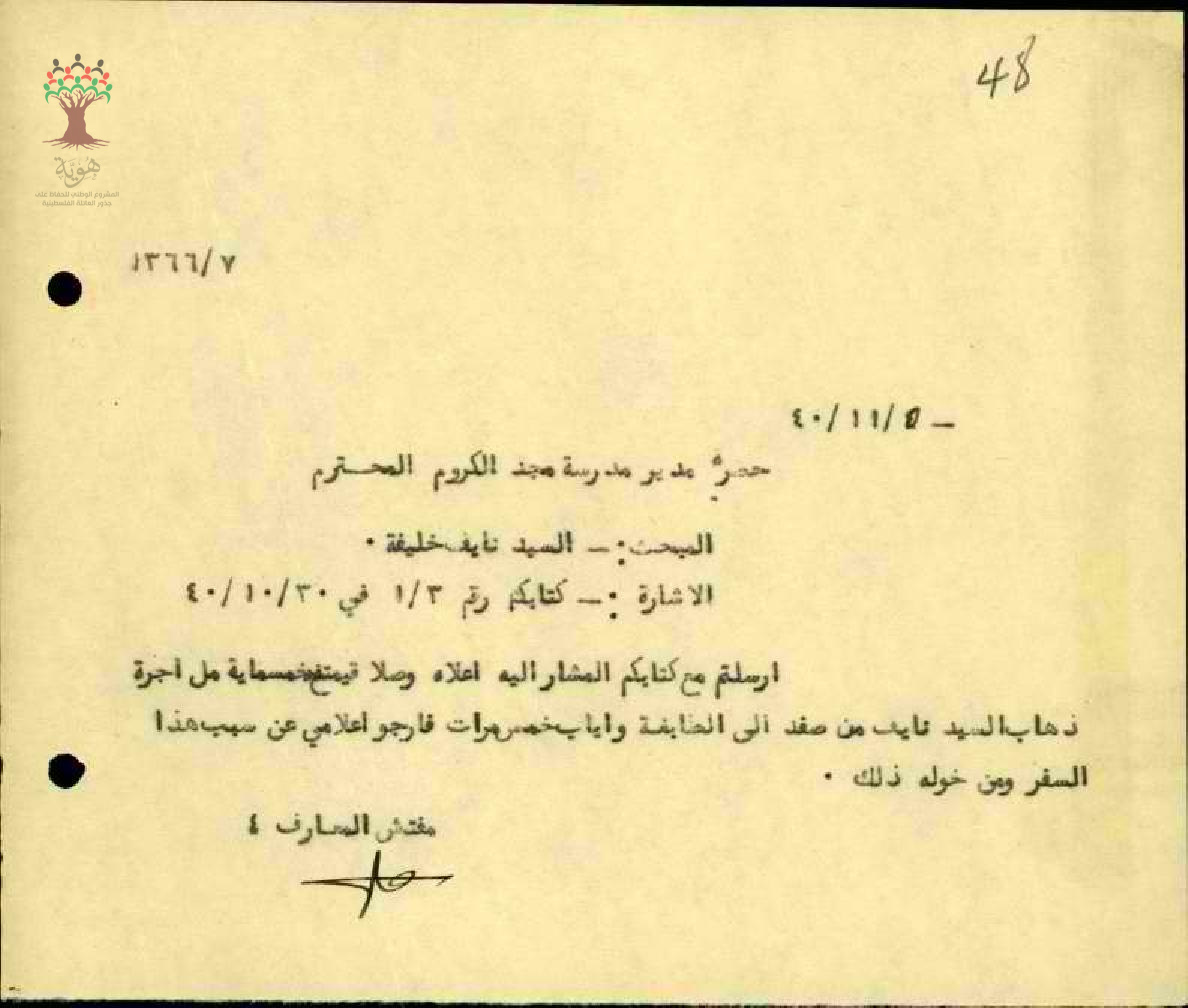 48
هُوِيَّة
المشروع الوطني للحفاظ على
جذور العائلة الفلسطينية
١٣٦٦/٧
ـ ٤٠/١١/٥
حضرة مدير مدرسة مجد الكروم المحترم
المبحث :ـ السيد نايف خليفة ٠
الاشارة :ـ كتابكم رقم ١/٣ في ٤٠/١٠/٣٠
ارسلتم مع كتابكم المشار اليه اعلاه وصلا قيمته خمسماية مل اجرة
ذهاب السيد نايف من صفد الى الطابغة واياب خمس مرات فارجو اعلامي عن سبب هذا
السفر ومن خوله ذلك ٠
مفتش المعارف ٤